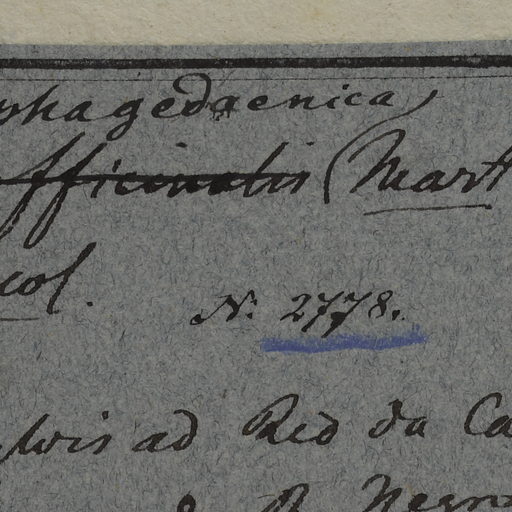 phagedaenica
officinalis (Mart
col.
N. 2778.
ad Rio da Ca
R. Negro